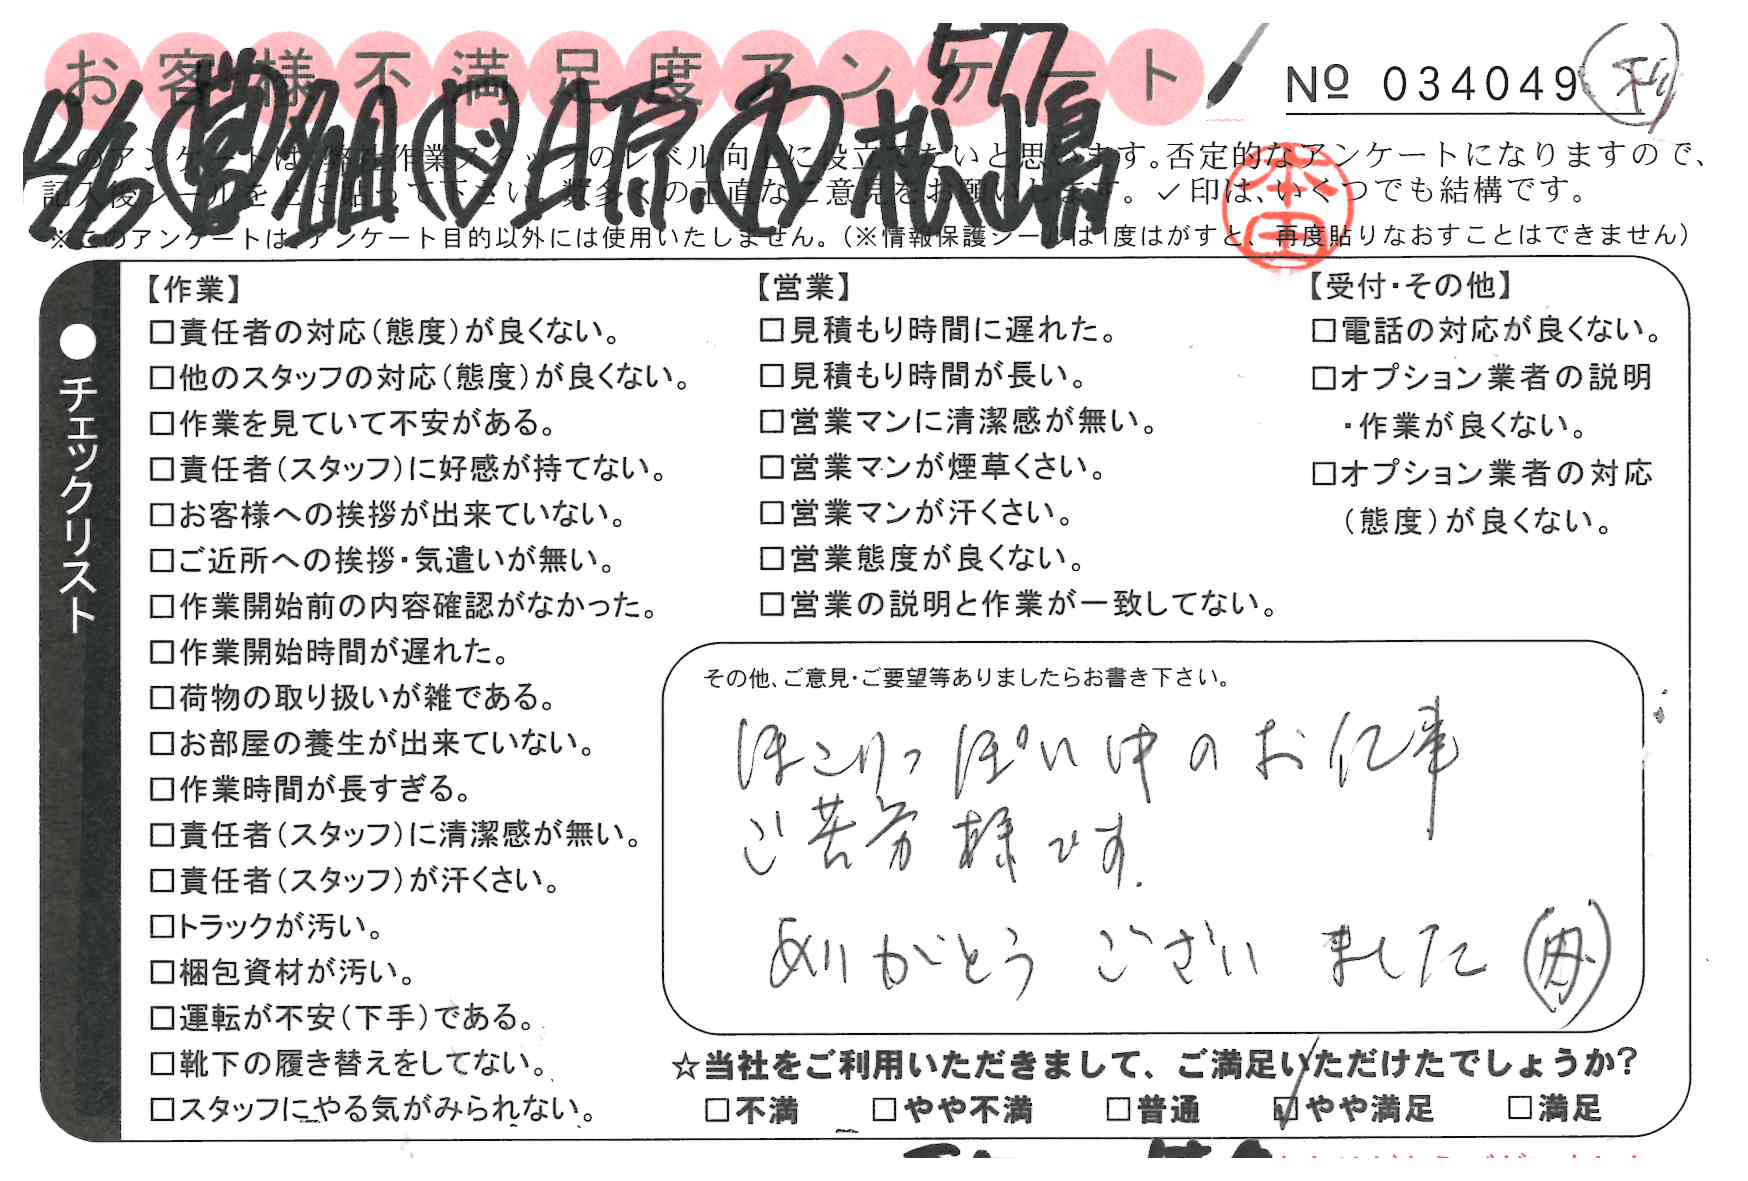 お客様不満足度アンケート
577
№ 034049
このアンケートは、弊社作業スタッフのレベル向上に役立てたいと思います。否定的なアンケートになりますので、
記入後シールを上に貼って下さい。数多くの正直なご意見をお願いします。✓印は、いくつでも結構です。
※このアンケートは、アンケート目的以外には使用いたしません。（※情報保護シールは1度はがすと、再度貼りなおすことはできません）
本田
●チェックリスト
【作業】
□責任者の対応（態度）が良くない。
□他のスタッフの対応（態度）が良くない。
□作業を見ていて不安がある。
□責任者（スタッフ）に好感が持てない。
□お客様への挨拶が出来ていない。
□ご近所への挨拶・気遣いが無い。
□作業開始前の内容確認がなかった。
□作業開始時間が遅れた。
□荷物の取り扱いが雑である。
□お部屋の養生が出来ていない。
□作業時間が長すぎる。
□責任者（スタッフ）に清潔感が無い。
□責任者（スタッフ）が汗くさい。
□トラックが汚い。
□梱包資材が汚い。
□運転が不安（下手）である。
□靴下の履き替えをしてない。
□スタッフにやる気がみられない。
【営業】
□見積もり時間に遅れた。
□見積もり時間が長い。
□営業マンに清潔感が無い。
□営業マンが煙草くさい。
□営業マンが汗くさい。
□営業態度が良くない。
□営業の説明と作業が一致してない。
【受付・その他】
□電話の対応が良くない。
□オプション業者の説明
・作業が良くない。
□オプション業者の対応
（態度）が良くない。
その他、ご意見・ご要望等ありましたらお書き下さい。
ほこりっぽい中のお仕事
ご苦労様です.
ありがとうございました(母)
☆当社をご利用いただきまして、ご満足いただけたでしょうか?
□不満 □やや不満 □普通 ☑やや満足 □満足